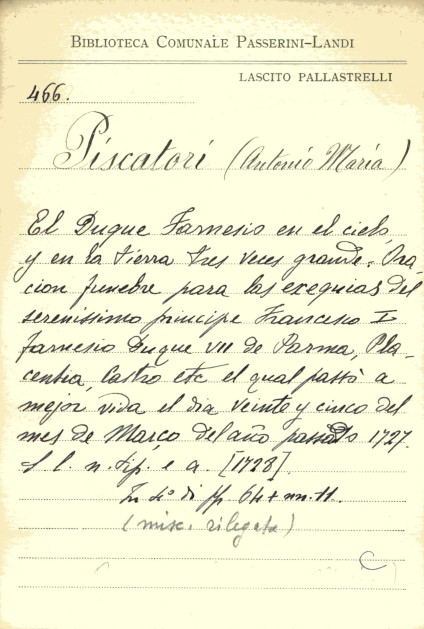 BIBLIOTECA COMUNALE PASSERINI-LANDI
LASCITO PALLASTRELLI
466.
Piscatori (Antonio Maria)
El Duque Farnesio en el cielo,
y en la tierra tres veces grande. Ora
cion funebre para las exequias del
serenissimo principe Francesco I
farnesio Duque VII de Parma, Pla-
centia, Castro etc el qual passò a
mejor vida el dia veinte y cinco del
mes de Março del año passado 1727.
S l. n. tip. e a. [1728].
In 4° di pp. 64 + nn. 11.
(misc. rilegata)
C